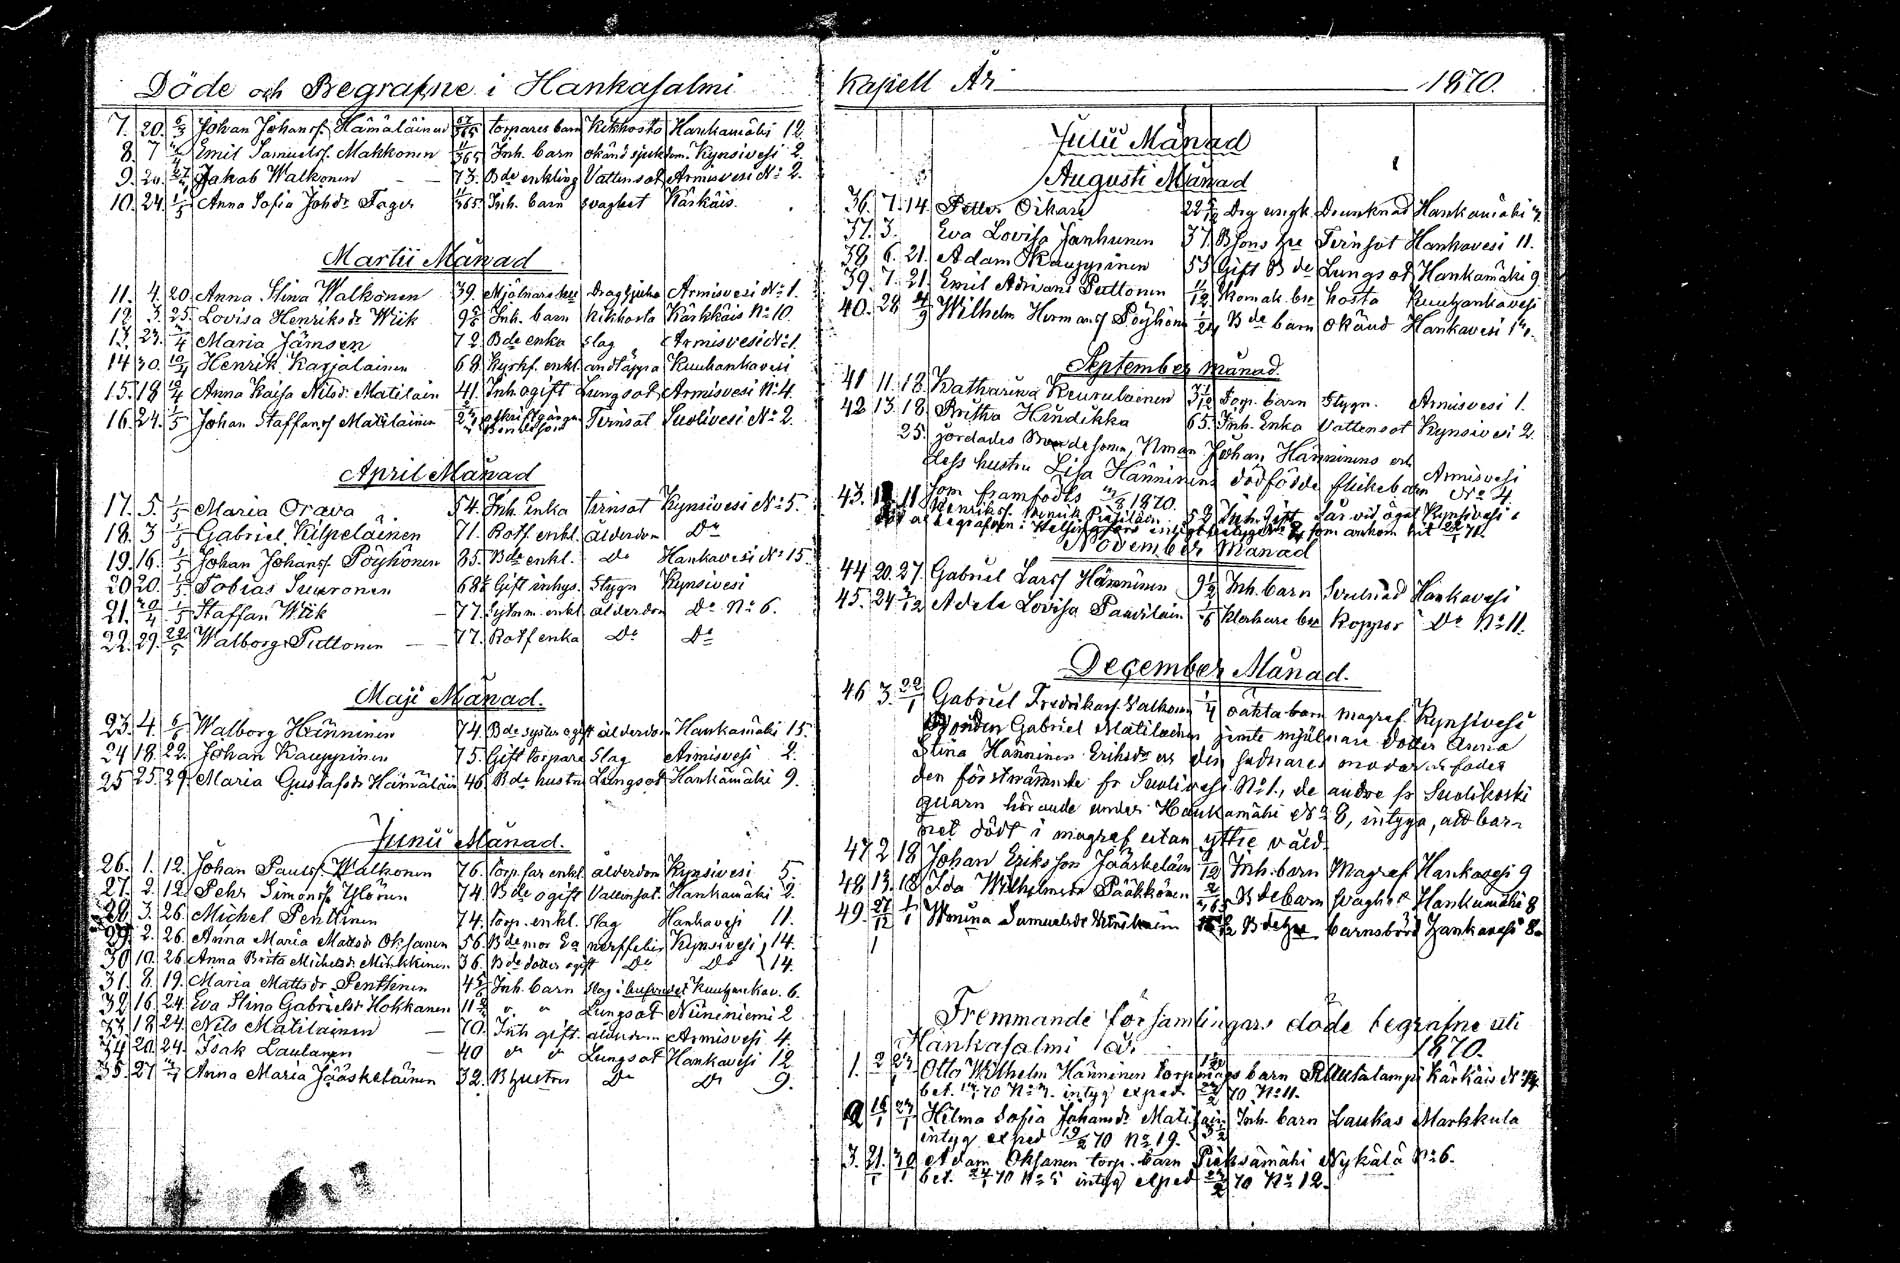 Döde och Begrafne i Hankasalmi
7. 20. 6/3 Johan Johanss. Hämäläinen 57/365 torpares barn Kikhosta Hankamäki 12.
8. 7 Emil Samuelss. Makkonen 11/365 Inh. barn okänd sjukdom. Kynsivesi 2.
9. 20. Jakob Walkonen 73. Bde enkling Vattensot Armisvesi No 2.
10. 24. 1/5 Anna Sofia Johdr Fager 11/365. Inh. barn svaghet Kärkäis.
Martii Månad
11. 4. 20. Anna Stina Walkonen 39. Mjölnars hu Dragsjuka Armisvesi No 1.
12. 3. 25. Lovisa Henriksdr Wiik Inh. barn kikhosta Kärkkäis No 10.
13. 23. Maria Jämsen 72. Bde enka slag Armisvesi No 1.
14 30. 10/4 Henrik Karjalainen 68. Kyrkf. enkl. andtäppa Kuuhankavesi
15. 18 10/4 Anna Kaisa Nilsdr Matilain 41. Inh. ogift Lungsot Armisvesi No 4.
16. 24. 1/5 Johan Staffanss Matilainen Tvinsot Suolivesi No 2.
April Månad
17. 5. 1/5 Maria Orava 54. Inh. Enka tvinsot Kynsivesi No 5.
18. 3 1/5 Gabriel Kilpeläinen 71. Rotf. enkl. ålderdom Do
19. 16. 1/5 Johan Johanss. Pöyhönen 85. Bde enkl. Do Hankavesi No 15.
20 20. 1/5 Tobias Suuronen 68 Gift inhys. Stygn Kynsivesi
21. 20/4 1/5 Staffan Wiik 77. Sytnm. enkl ålderdom Do No 6.
22. 29. 22/5 Walborg Puttonen 77. Rotf enka Do Do
Maji Månad.
23. 4. 6/6 Walborg Hänninen 74. Bde syster ogift ålderdom Hankamäki 15.
24 18. 22. Johan Kauppinen 75. Gift torpare Slag Armisvesi 2.
25 25. 29. Maria Gustafsdr Hämäläin 46. Bde hustru Lungsot Hankamäki 9.
Junii Månad.
26. 1. 12. Johan Paulss. Walkonen 76. torp. far enkl. ålderdom Kynsivesi 5.
27. 2. 12. Pehr Simonss Ylönen 74. Bde ogift Vattensot. Hankamäki 2.
28. 3. 26. Michel Penttinen 74. torp. enkl. slag Hankavesi 11.
29. 2. 26. Anna Maria Mattsdr Oksanen 56. Bde mor Ea nerffeber Kynsivesi 14.
30 10. 26. Anna Brita Michelsdr Minkkinen 36. Bde dotter ogift Do Do 14.
31. 8. 19. Maria Mattsdr Penttinen Inh. barn Slag i hufvudet Kuuhankav. 6.
32 16. 24. Eva Stina Gabrielsdr Hokkanen Lungsot Niininiemi 2
33 18 24. Nils Matilainen 70. Inh gift. ålderdom Armisvesi 4.
34 20. 24. Isak Laulanen 40 Lungsot Hankavesi 12
35. 27 Anna Maria Jääskeläinen 32. Bhustru Do Do 9.
Kapell År 1870.
Julii Månad
Augusti Månad
36. 7. 14. Petter Oikari Drg. ungk. Drunknad Hankamäki
37. 3. Eva Lovisa Janhunen 37. Bsons hu Tvinsot Hankavesi 11.
38 6. 21. Adam Kauppinen 55 Gift Bde Lungsot Hankamäki 9.
39. 7. 21. Emil Adrians Puttonen 11/12 hosta Kuuhankavesi
40. 28 4/9 Wilhelm Hermanss Pöyhön 1/24 Bde barn okänd Hankavesi
September månad.
41 11. 18. Katharina Keurulainen Torp. barn Stygn. Armisvesi 1.
42 13. 18. Britha Hindikka 65. Inh. Enka Vattensot Kynsivesi 2.
25. jordades Bondesonen, Nman Johan Hänninens och
dess hustru Lisa Hänninens dödfödde flickebarn Armisvesi
som framfödts 1870. No 4.
43. 11 Henrikss. Inh. Gift Sår vid ögat Kynsivesi
begrafven i Helsingfors som ankom hit 71.
November Månad
44 20. 27. Gabriel Larss Hänninen 9 1/2 Inh. barn Svulnad Hankavesi
45. 24 Adela Lovisa Paavilain 1/6 Koppor Do No 11.
December Månad.
46 3. 22/1 Gabriel Fredrikss. Valkonen 1/4 oäkta barn magref. Kynsivesi
Bonden Gabriel Matilainen jemte mjölnare dotter Anna
Stina Hänninen Eriksdr och den sednares moder och fader
den förstnämnde fr Suolivesi No 1., de andre fr Suolikoski
quarn hörande under Hankamäki No 8, intyga, att bar-
net dödt i magref utan yttre våld.
47 2 18 Johan Eriksson Jääskeläin Inh. barn Magref Hankavesi 9
48 12. 18. Ida Wilhelmsdr Pääkkönen Bde barn svaghet Hankamäki 8
49. 27/12 1/1 Wmina Samuelsdr Bdehu barnsbörd Hankavesi 8.
Fremmande församlingars döde begrafne uti
Hankasalmi år 1870.
1. 2 23 Otto Wilhelm Hänninen torpares barn Rautalampi Kärkäis No
bet. 70 No intyg exped. 70 No 11.
2 16/1 Hilma Sofia Johansdr Matilain Inh. barn Laukas Markkula
intyg exped 19/2 70 No 19.
3. 21/1 30/1 Adam Oksanen torp. barn Pieksämäki Nykälä No 6.
bet. 24/1 70 No 5 intyg exped 70 No 12.